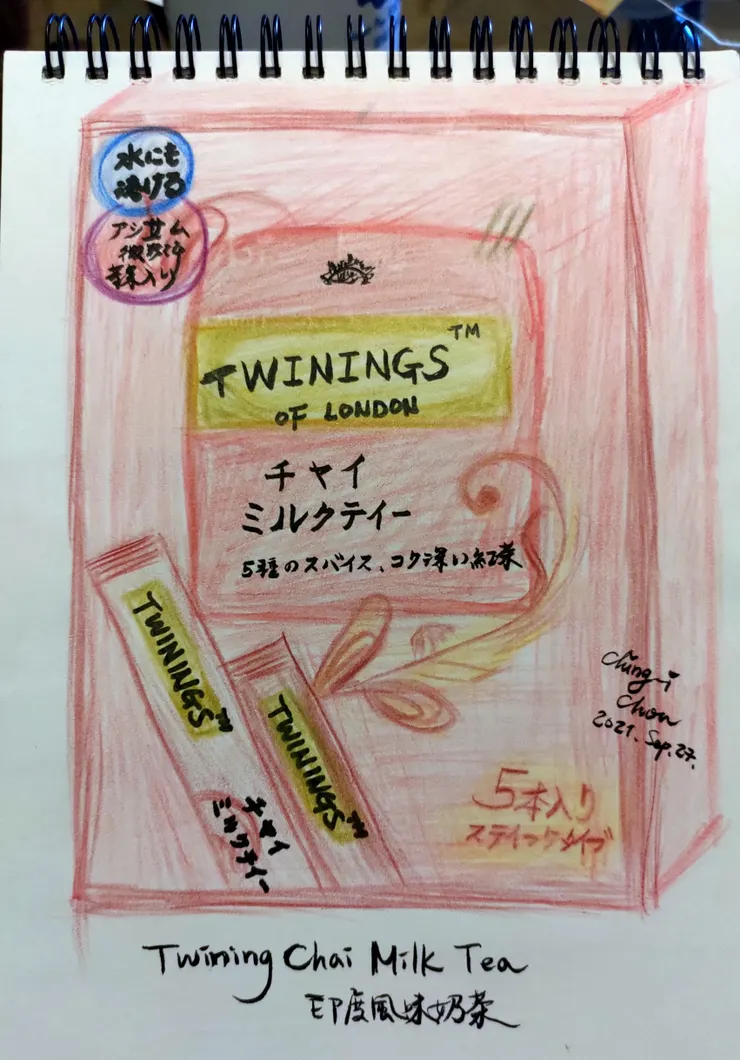 水にも
溶ける
アッサム
微粉砕
茶葉入り
TWININGS™
OF LONDON
チャイ
ミルクティー
5種のスパイス、コク深い紅茶
TWININGS™
チャイ
ミルクティー
TWININGS™
Ching-i
Chou
2021. Sep. 27.
5本入り
スティックタイプ
Twining Chai Milk Tea
印度風味奶茶